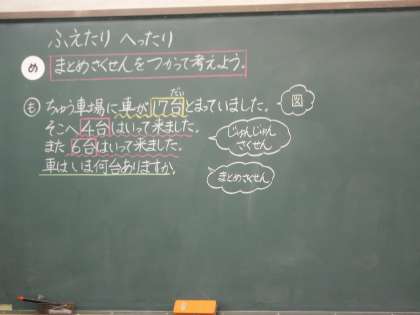 ふえたり へったり
め まとめさくせんをつかって考えよう。
も ちゅう車場に車が17台とまっていました。
だい
図
そこへ4台はいって来ました。
じゅんじゅん
さくせん
また6台はいって来ました。
車はいま何台ありますか。
まとめさくせん